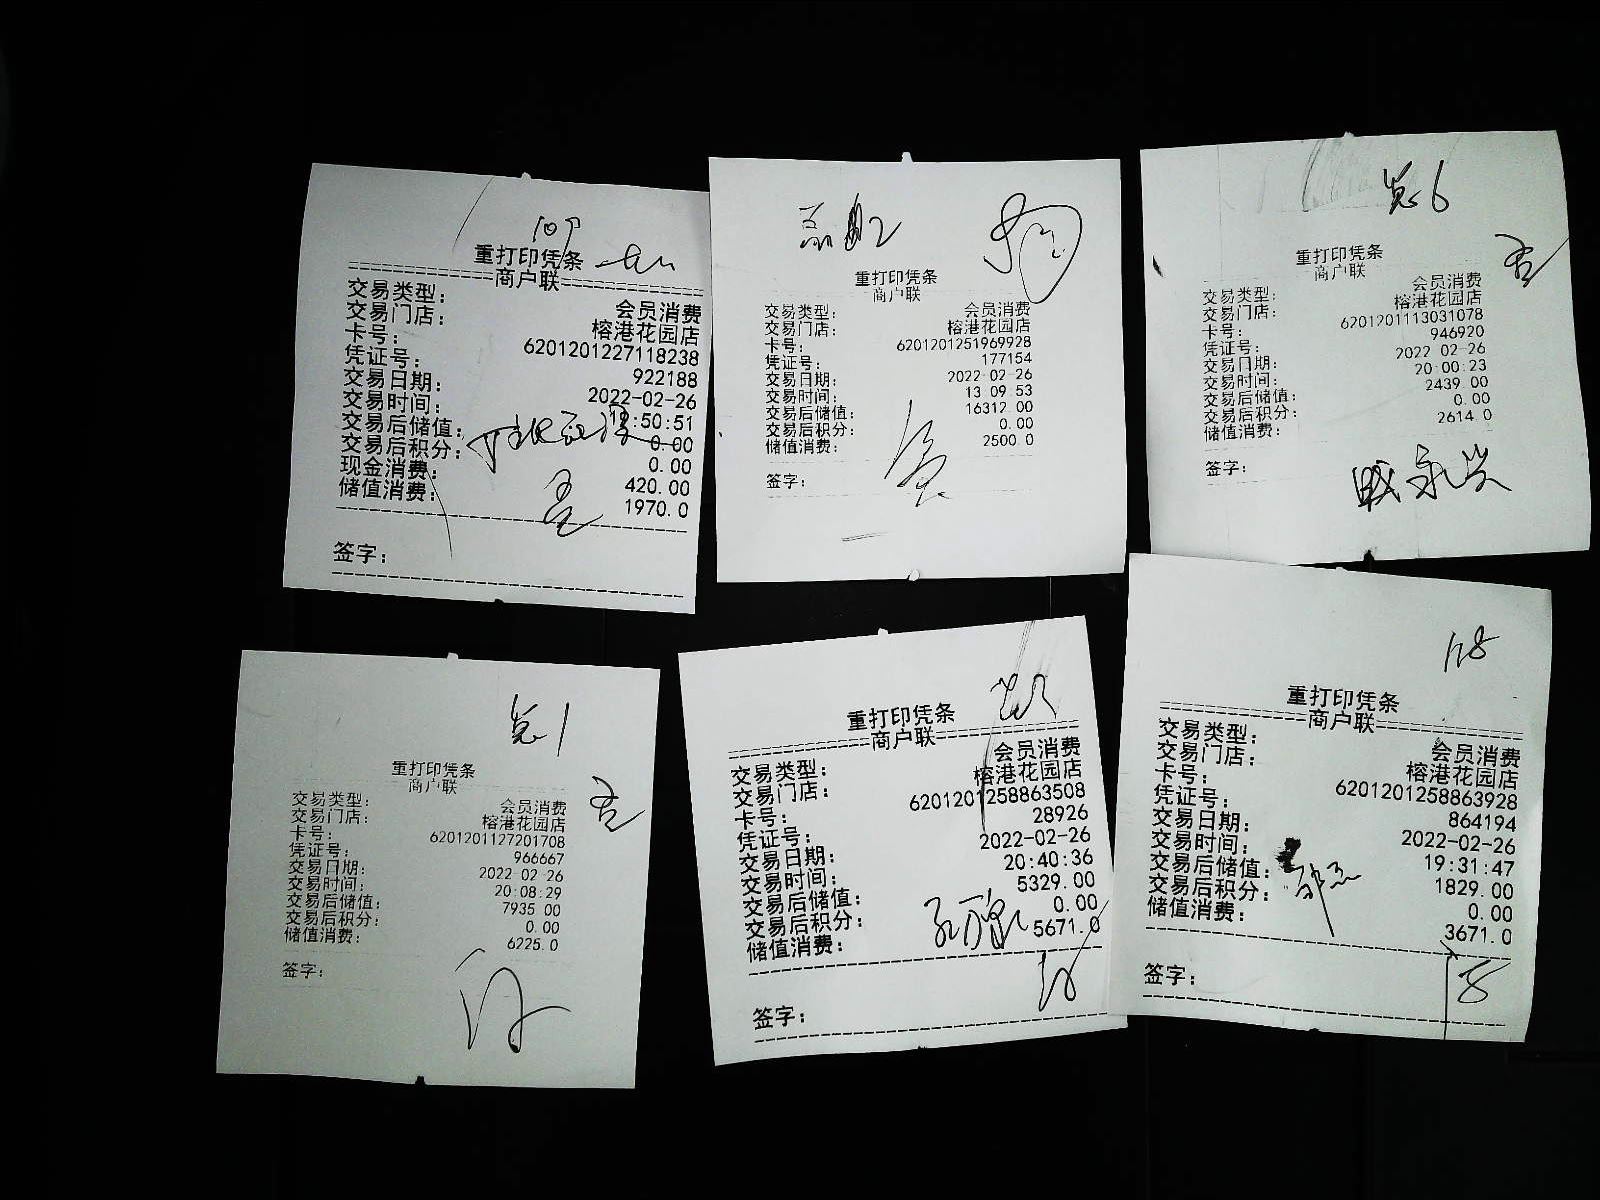 109
重打印凭条
商户联
交易类型: 会员消费
交易门店: 榕港花园店
卡号: 6201201227118238
凭证号: 922188
交易日期: 2022-02-26
交易时间: :50:51
交易后储值: 0.00
交易后积分: 0.00
现金消费: 420.00
储值消费: 1970.0
签字:
重打印凭条
商户联
交易类型: 会员消费
交易门店: 榕港花园店
卡号: 6201201251969928
凭证号: 177154
交易日期: 2022-02-26
交易时间: 13:09:53
交易后储值: 16312.00
交易后积分: 0.00
储值消费: 2500.0
签字:
览6
重打印凭条
商户联
交易类型: 会员消费
交易门店: 榕港花园店
卡号: 6201201113031078
凭证号: 946920
交易日期: 2022-02-26
交易时间: 20:00:23
交易后储值: 2439.00
交易后积分: 0.00
储值消费: 2614.0
签字:
臧永尖
览1
重打印凭条
商户联
交易类型: 会员消费
交易门店: 榕港花园店
卡号: 6201201127201708
凭证号: 966667
交易日期: 2022-02-26
交易时间: 20:08:29
交易后储值: 7935.00
交易后积分: 0.00
储值消费: 6225.0
签字:
重打印凭条
商户联
交易类型: 会员消费
交易门店: 榕港花园店
卡号: 6201201258863508
凭证号: 28926
交易日期: 2022-02-26
交易时间: 20:40:36
交易后储值: 5329.00
交易后积分: 0.00
储值消费: 5671.0
签字:
118
重打印凭条
商户联
交易类型: 会员消费
交易门店: 榕港花园店
卡号: 6201201258863928
凭证号: 864194
交易日期: 2022-02-26
交易时间: 19:31:47
交易后储值: 1829.00
交易后积分: 0.00
储值消费: 3671.0
签字: